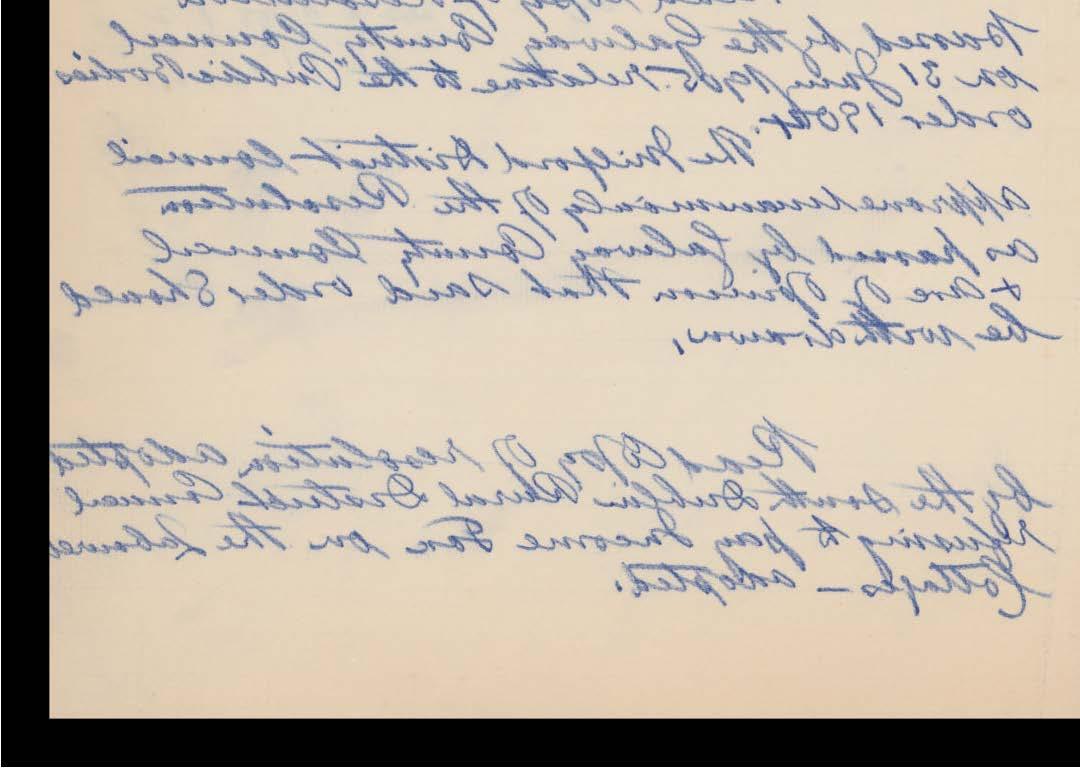 Read copy of resolution
passed by the Galway County Council
on 31 Jany 1905 relative to the "Public Bodies
order 1904.
The Milford District Council
approve unanimously of the Resolution
as passed by Galway County Council
& are of opinion that said order should
be withdrawn,
Read Copy of resolution adopted
by the South Dublin Rural District Council
refusing to pay Income Tax on the Labourers
Cottages — adopted.